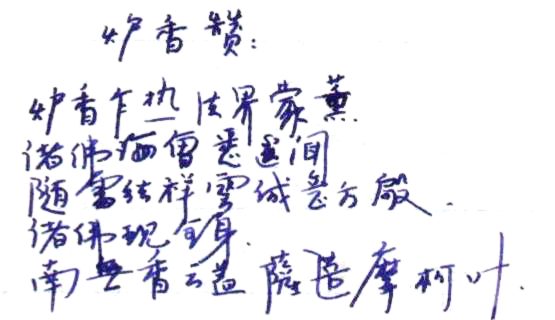 炉香赞:
炉香乍热法界蒙薰
诸佛海会悉遥闻
随处结祥云诚意方殷.
诸佛现全身.
南无香云盖菩萨摩诃叶.